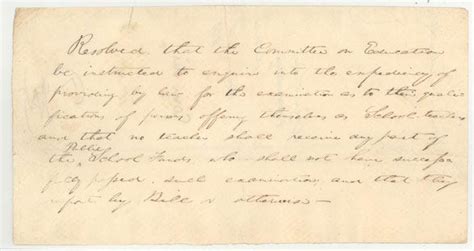 Resolved that the Committee on Education
be instructed to enquire into the expediency of
providing by law for the examination as to the quali-
fications of persons offering themselves as School teachers
and that no teacher shall receive any part of
the Public School Funds who shall not have success
fully passed such examination and that they
report by Bill or otherwise —